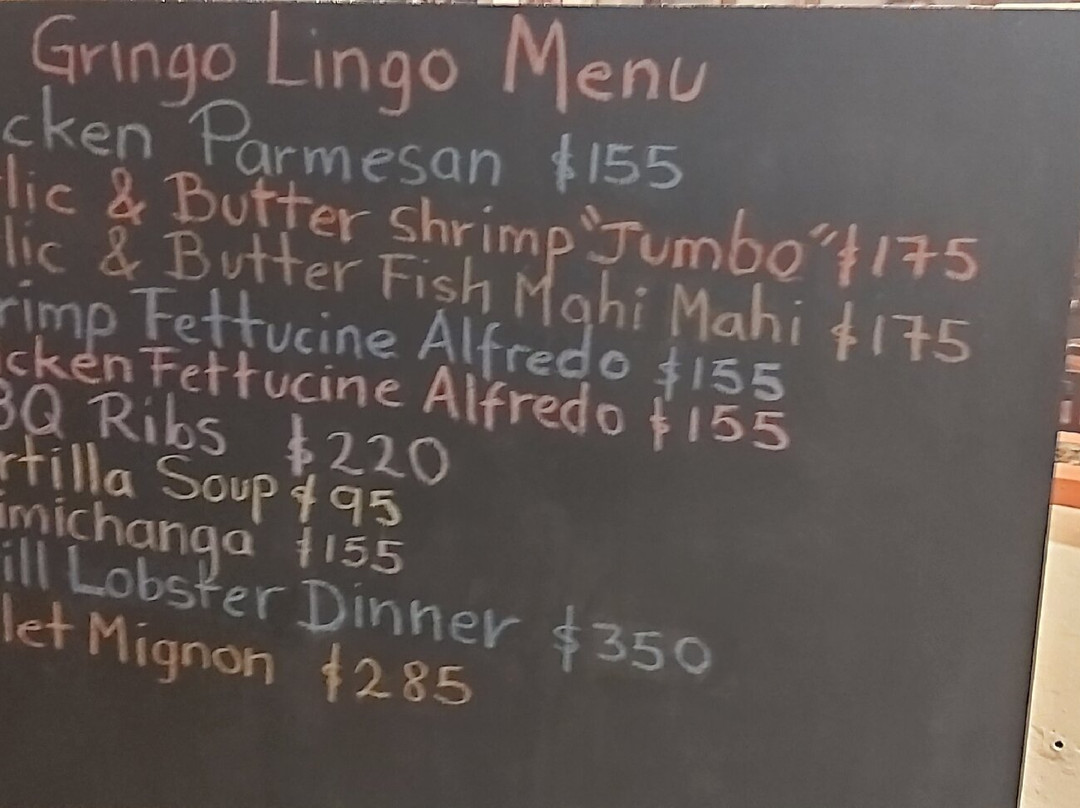 Gringo Lingo Menu
cken Parmesan $155
lic & Butter Shrimp "Jumbo" $175
lic & Butter Fish Mahi Mahi $175
rimp Fettucine Alfredo $155
cken Fettucine Alfredo $155
BQ Ribs $220
rtilla Soup $95
imichanga $155
ill Lobster Dinner $350
let Mignon $285